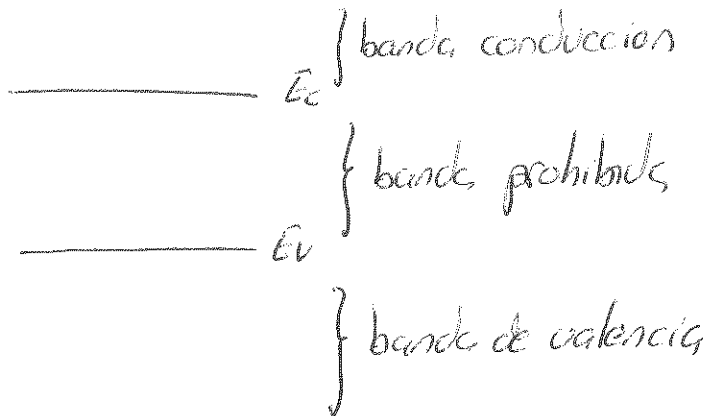 } banda conduccion
Ec
} banda prohibida
Ev
} banda de valencia